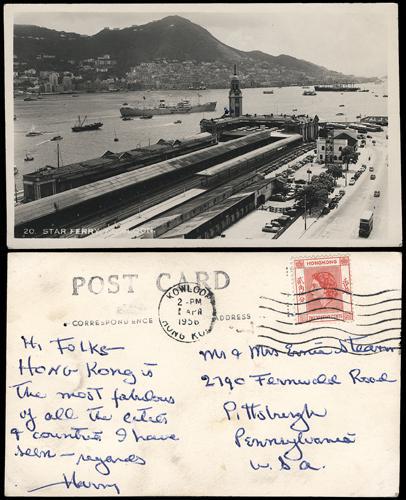 20. STAR FERRY, KOWLOON.
POST CARD
CORRESPONDENCE
ADDRESS
KOWLOON
2 - PM
1 APR
1956
HONG KONG
HONGKONG
Hi Folks -
HONG KONG is
the most fabulous
of all the cities
& countries I have
seen - regards
Harry
Mr & Mrs Ernie Stearn
2790 Fernwald Road
Pittsburgh
Pennsylvania
U.S.A.